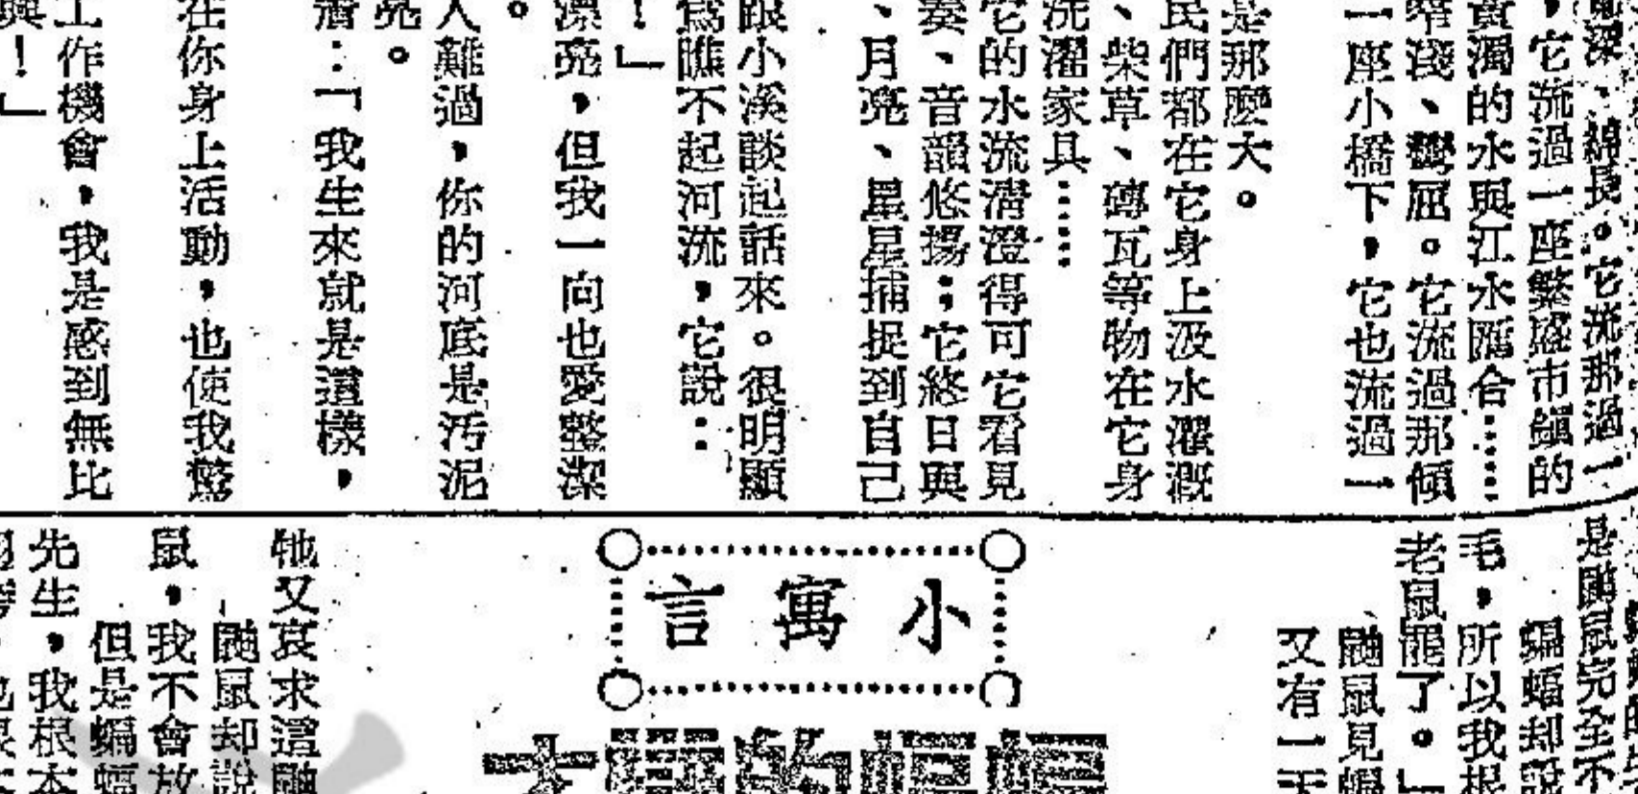 深、綿長。它流那過一
,它流過一座繁盛市鎮的
黃濁的水與江水匯合……
窄淺、彎屈。它流過那傾
一座小橋下,它也流過一
是那麼大。
民們都在它身上汲水灌溉
、柴草、磚瓦等物在它身
洗濯家具……
它的水流清澄得可它看見
奏、音韻悠揚;它終日與
、月亮、星星捕捉到自己
跟小溪談起話來。很明顯
爲瞧不起河流,它說:
!」
漂亮,但我一向也愛整潔
。
人難過,你的河底是污泥
亮。
:「我生來就是這樣,
在你身上活動,也使我驚
工作機會,我是感到無比
興!」
是鼬鼠完全不
蝙蝠却說
毛,所以我根
老鼠罷了。」
鼬鼠見蝙
又有一天
小寓言
蝙蝠的
牠又哀求這鼬
鼬鼠却說
鼠,我不會放
但是蝙蝠
先生,我根本